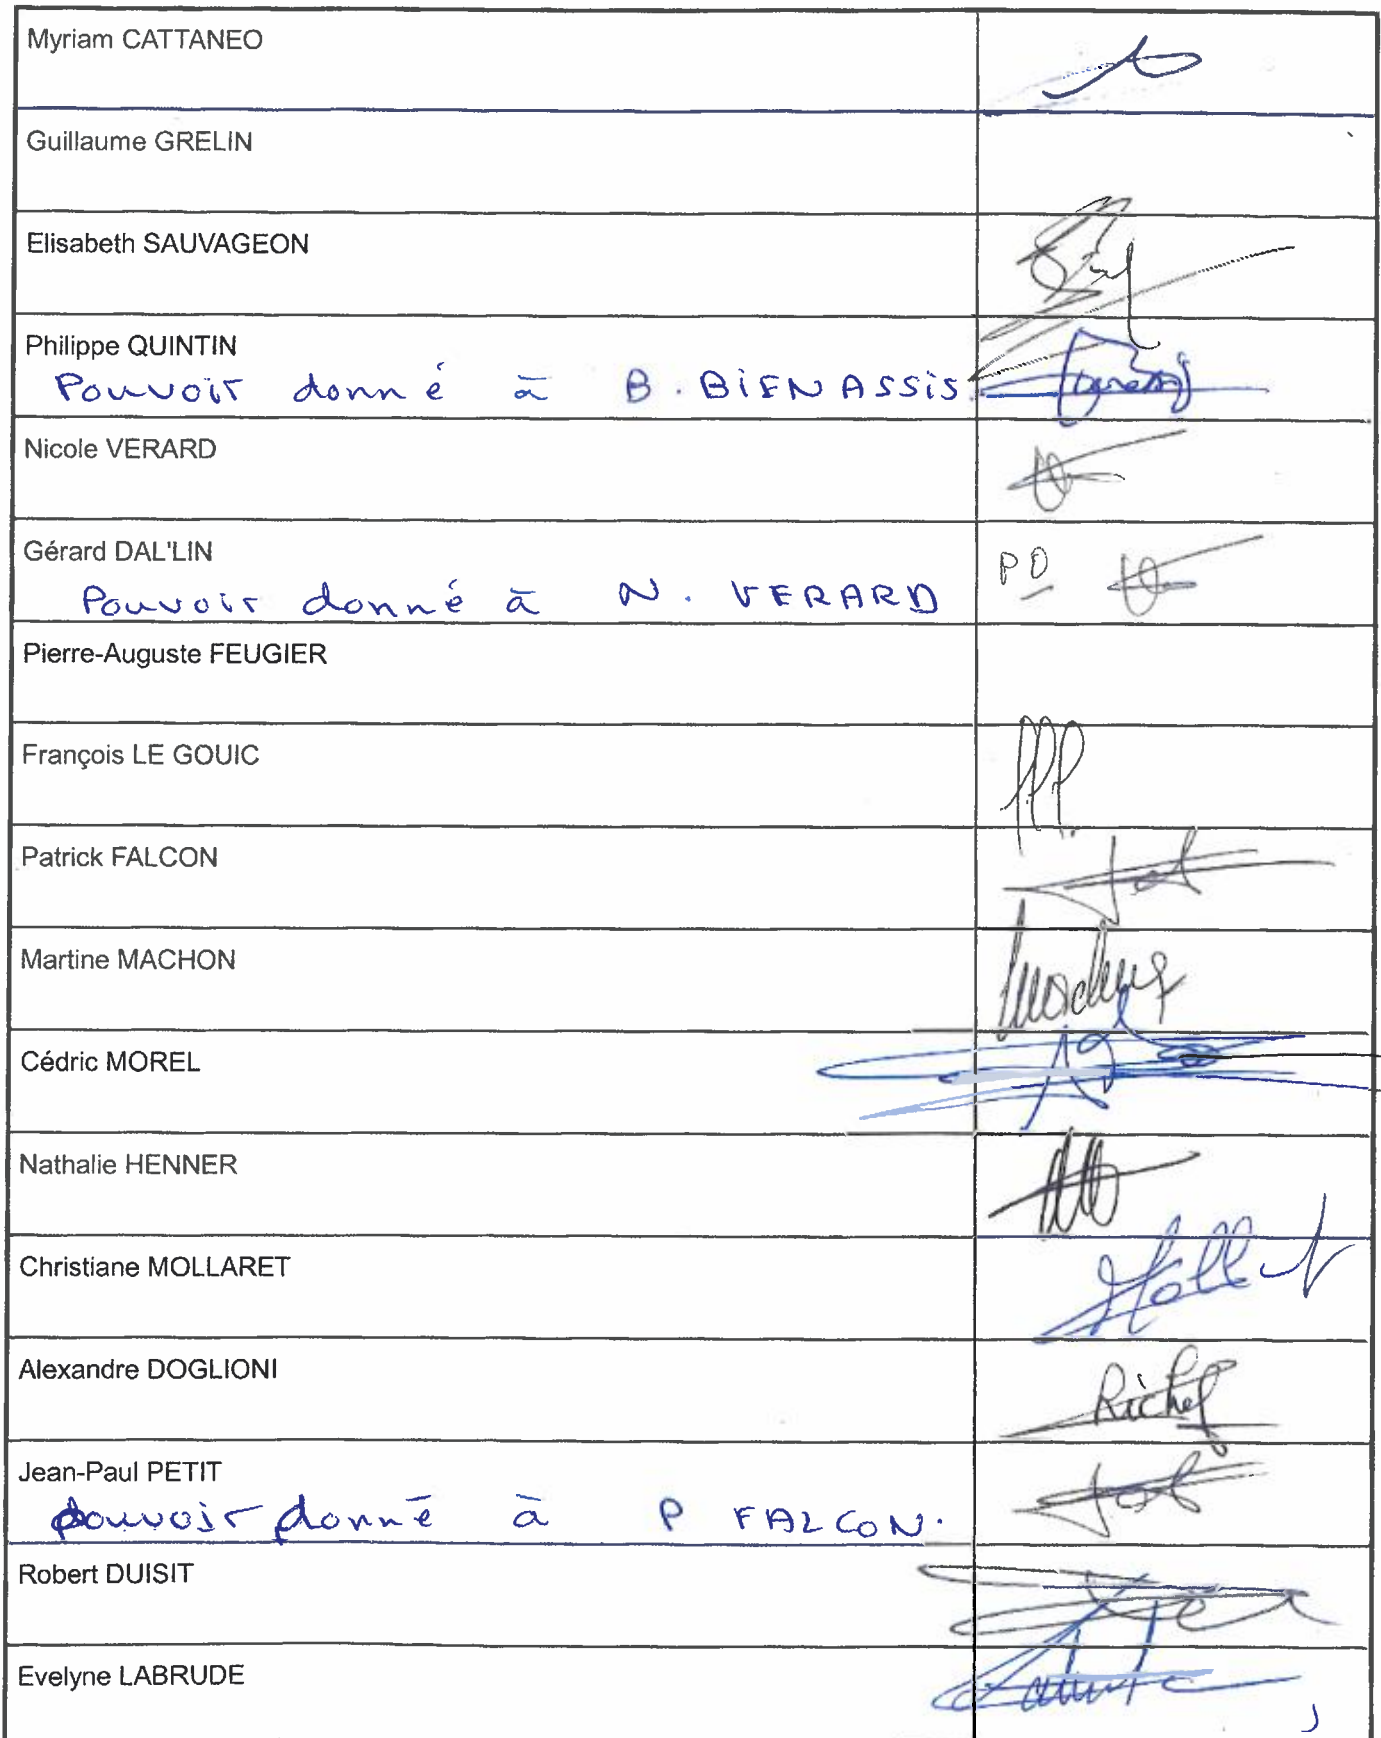 Myriam CATTANEO
Guillaume GRELIN
Elisabeth SAUVAGEON
Philippe QUINTIN
Pouvoir donné à B. BIENASSIS
Nicole VERARD
Gérard DAL'LIN
PO
Pouvoir donné à N. VERARD
Pierre-Auguste FEUGIER
François LE GOUIC
Patrick FALCON
Martine MACHON
Cédric MOREL
Nathalie HENNER
Christiane MOLLARET
Alexandre DOGLIONI
Jean-Paul PETIT
pouvoir donné à P FALCON.
Robert DUISIT
Evelyne LABRUDE